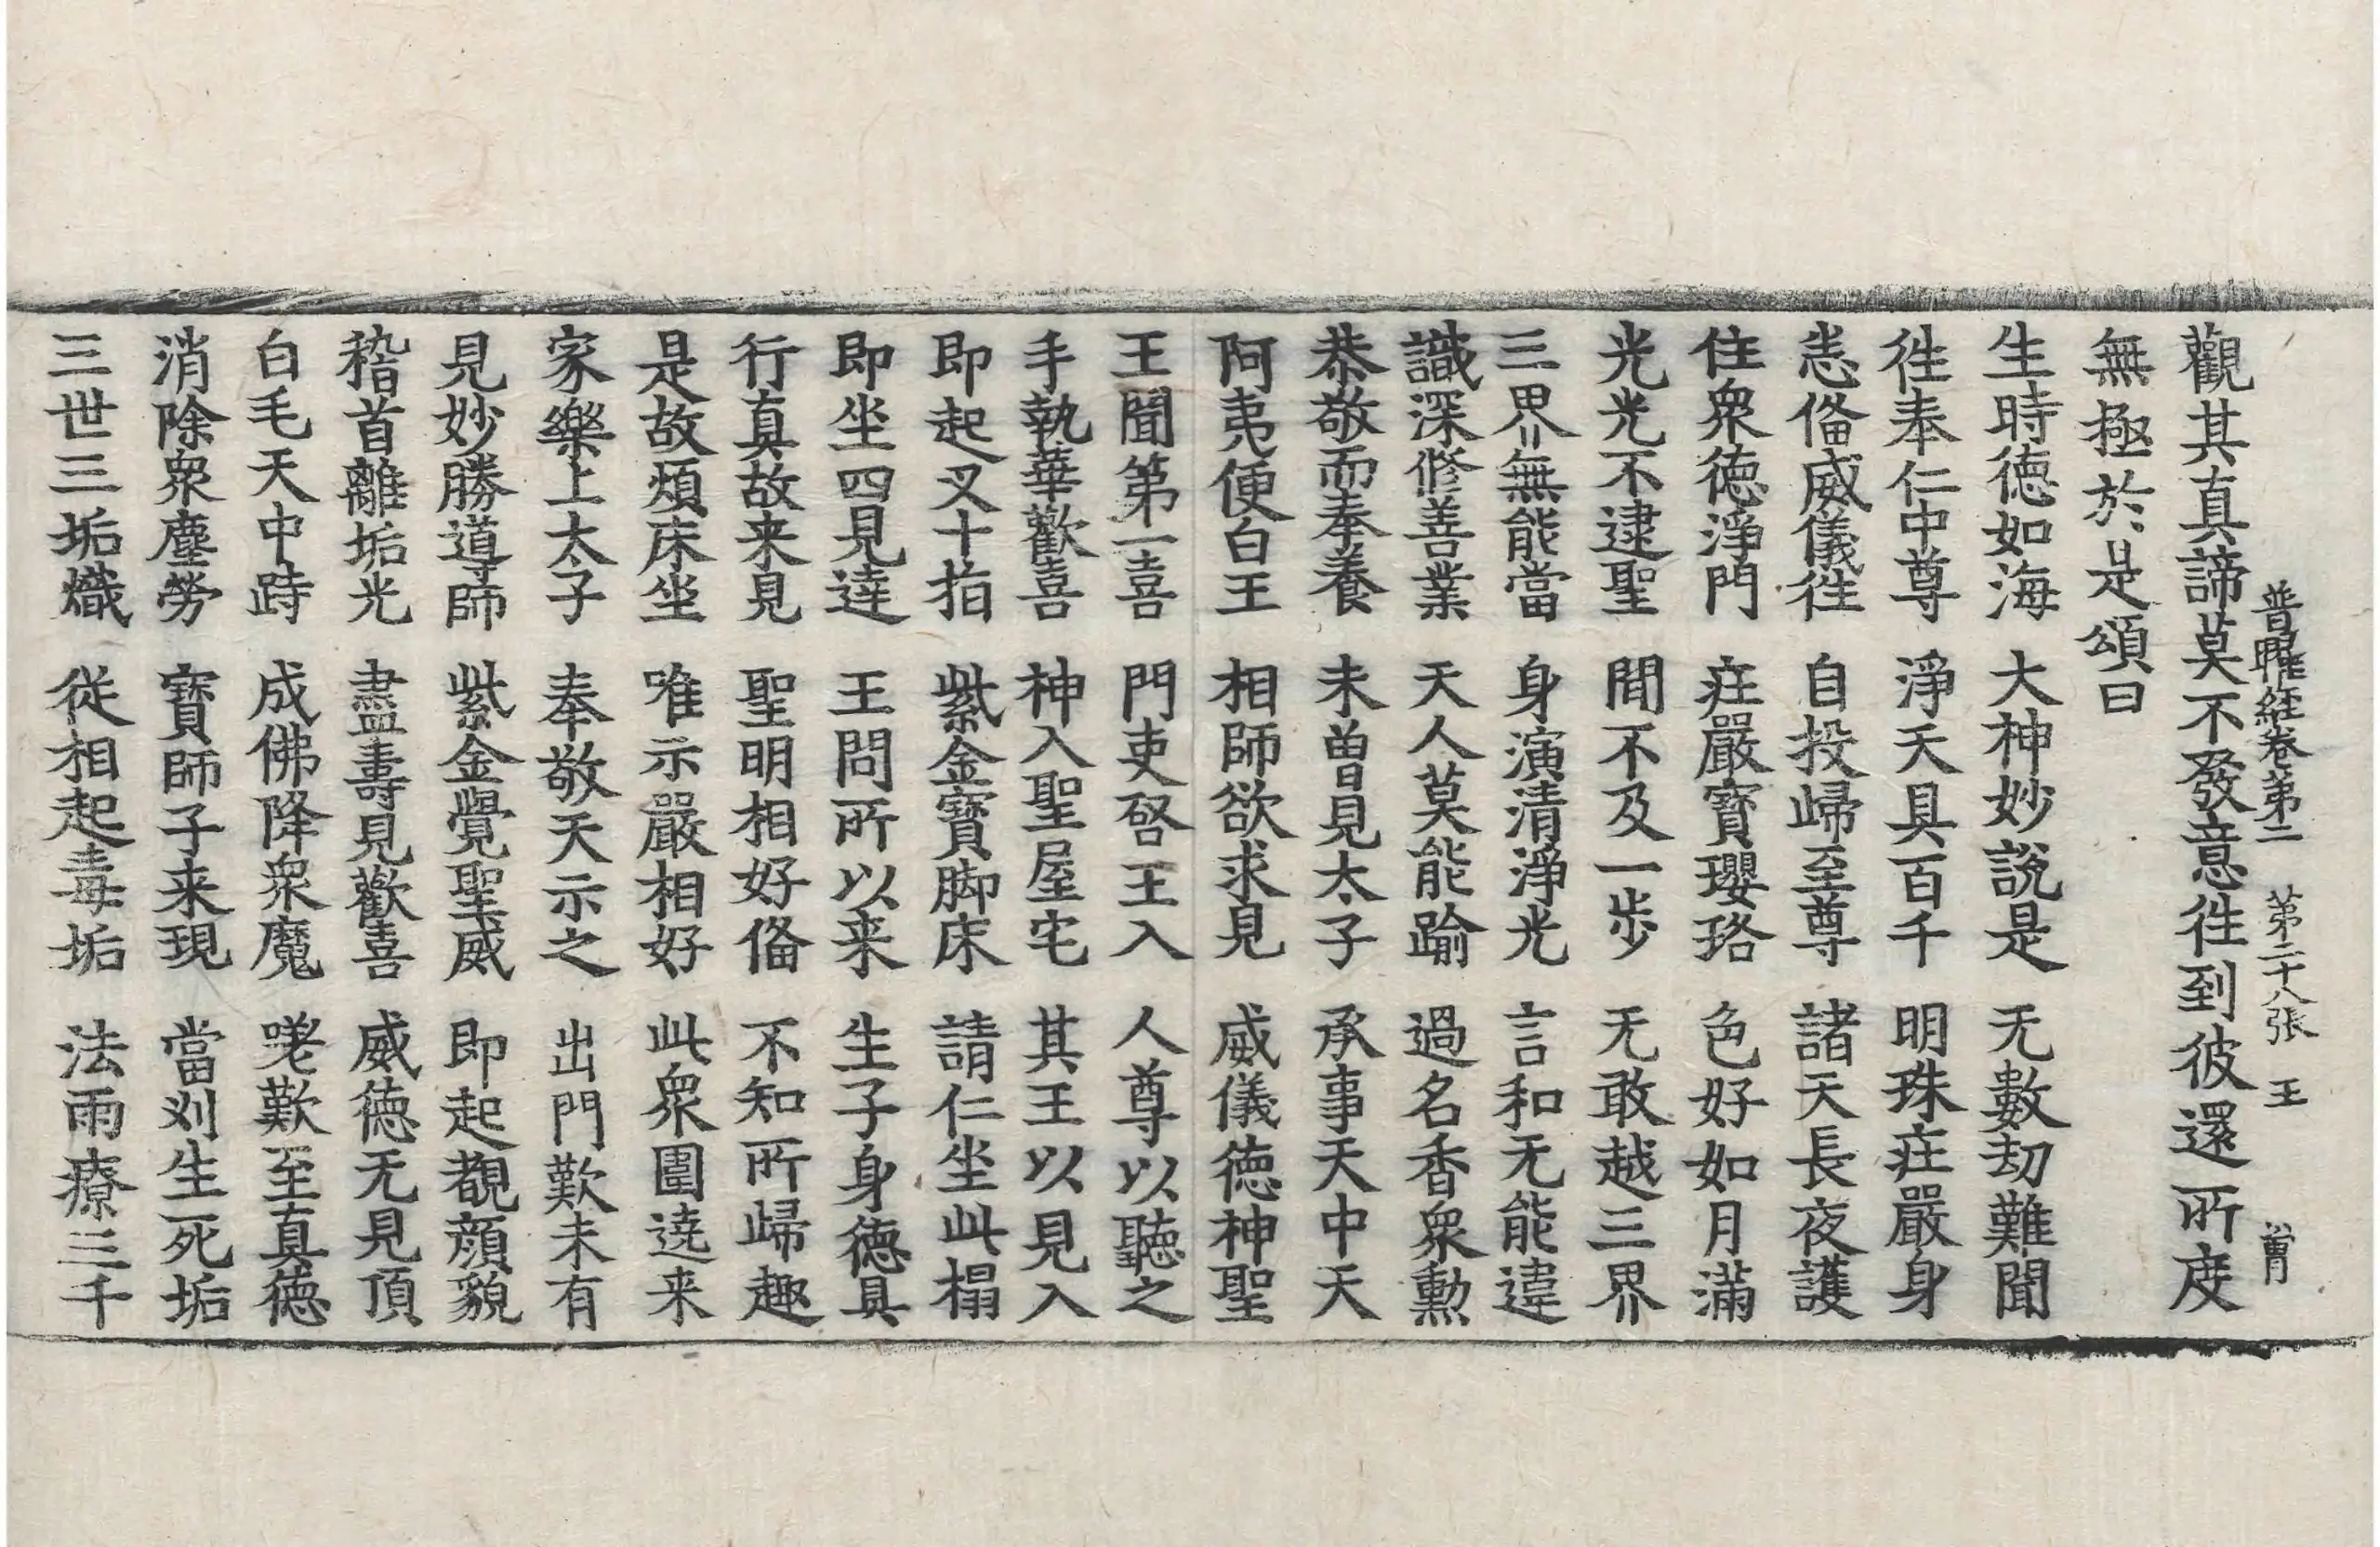 普曜經卷第二 第二十八張 王
觀其真諦莫不發意往到彼還所度
無極於是頌曰
生時德如海 大神妙說是 无數劫難聞
往奉仁中尊 淨天具百千 明珠莊嚴身
悉俻威儀往 自投歸至尊 諸天長夜護
住衆德淨門 莊嚴寶瓔珞 色好如月滿
光光不逮聖 間不及一步 无敢越三界
三界無能當 身演清淨光 言和无能違
識深修善業 天人莫能踰 過名香衆勳
恭敬而奉養 未曽見太子 承事天中天
阿夷便白王 相師欲求見 威儀德神聖
王聞第一喜 門吏啓王入 人尊以聽之
手執華歡喜 神入聖屋宅 其王以見入
即起叉十指 紫金寶脚床 請仁坐此榻
即坐四見達 王問所以来 生子身德具
行真故来見 聖明相好俻 不知所歸趣
是故煩床坐 唯示嚴相好 此衆圍遶来
家樂上太子 奉敬天示之 出門歎未有
見妙勝導師 紫金覺聖威 即起覩顔貌
稽首離垢光 盡壽見歡喜 威德无見頂
白毛天中跱 成佛降衆魔 嗟歎至真德
消除衆塵勞 寶師子来現 當刈生死垢
三世三垢熾 從相起毒垢 法雨療三千